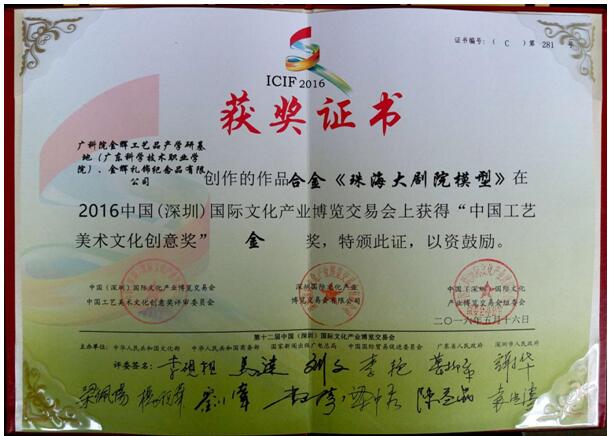 证书编号:( C )第 281 号
ICIF 2016
获奖证书
广科院金辉工艺品产学研基
地(广东科学技术职业学
院)、金辉礼饰纪念品有限
公司
创作的作品合金《珠海大剧院模型》在
2016中国(深圳)国际文化产业博览交易会上获得“中国工艺
美术文化创意奖” 金 奖,特颁此证,以资鼓励。
中国(深圳)国际文化产业博览交易会
中国工艺美术文化创意奖评审委员会
深圳国际文化产业
博览交易会有限公司
中国(深圳)国际文化
产业博览交易会组委会
二〇一六年五月十六日
第十二届中国(深圳)国际文化产业博览交易会
主办单位: 中华人民共和国文化部 中华人民共和国商务部 国家新闻出版广电总局 中国国际贸易促进委员会 广东省人民政府 深圳市人民政府
评委签名: